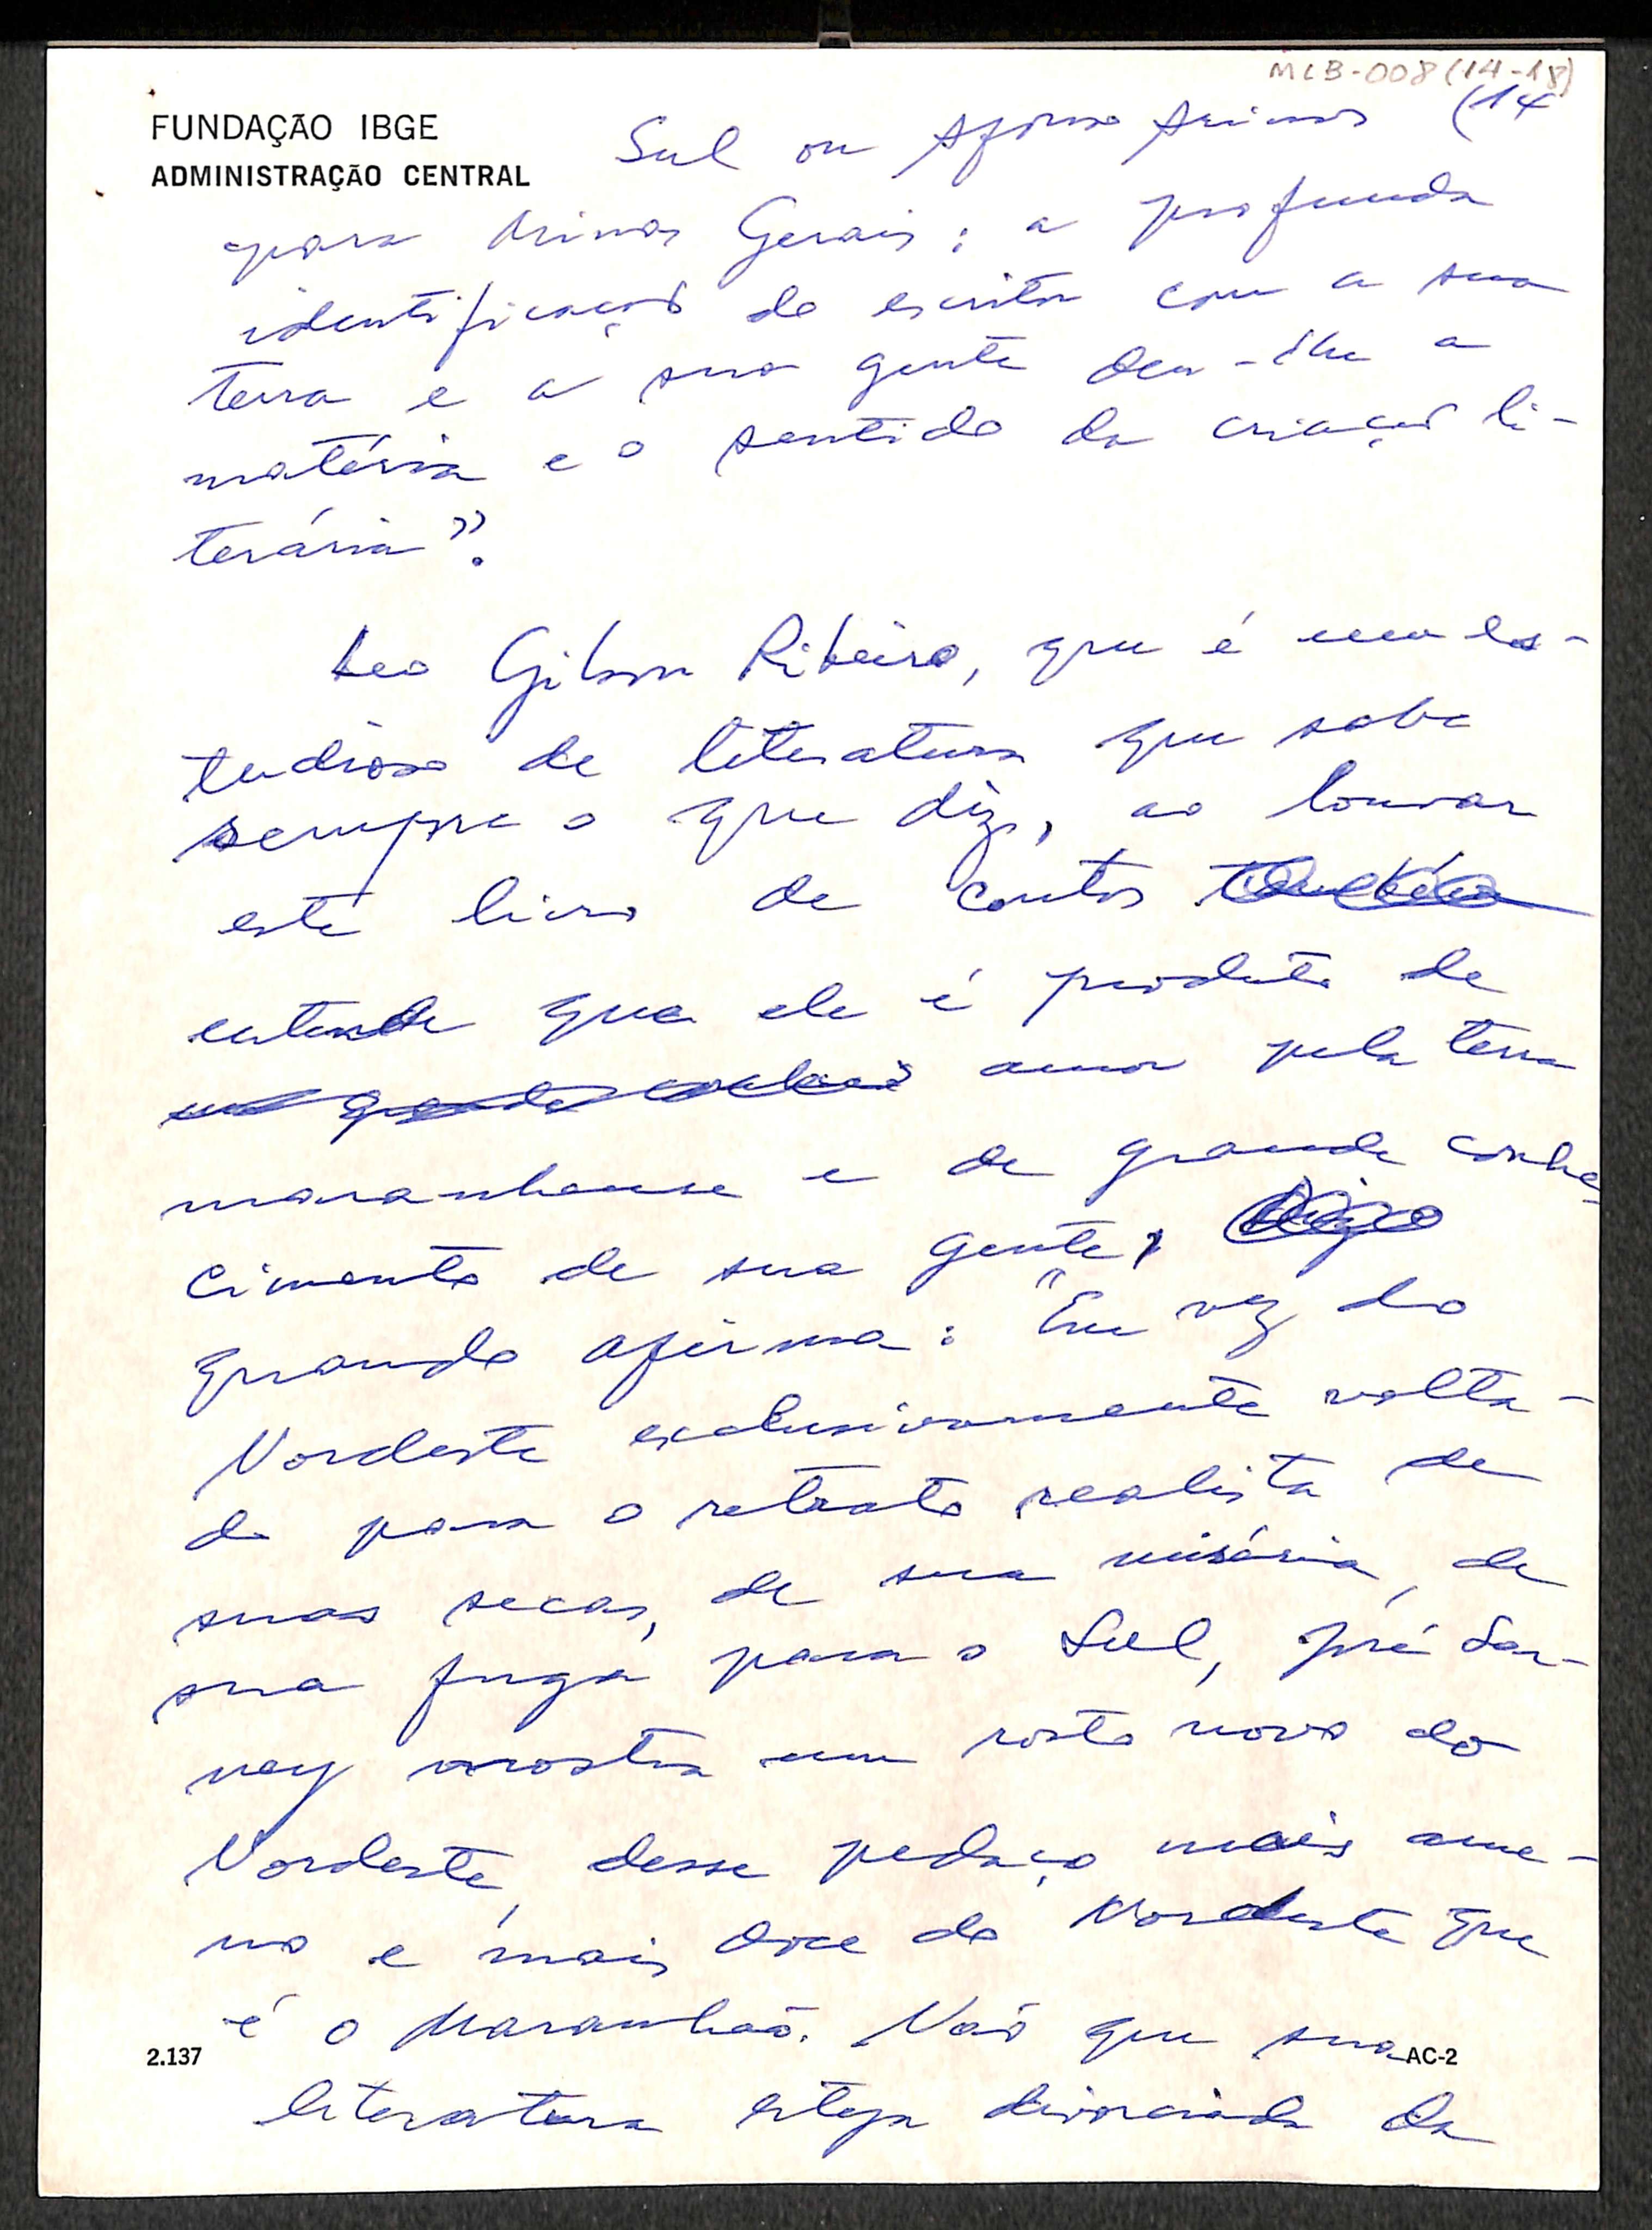 MLB-008(14-18)
FUNDAÇÃO IBGE
ADMINISTRAÇÃO CENTRAL
Sul ou Afonso Arinos (14
para Minas Gerais: a profunda
identificação do escritor com a sua
terra e a sua gente deu-lhe a
matéria e o sentido da criação li-
terária".
Leo Gilson Ribeiro, que é um es-
tudioso de literatura que sabe
sempre o que diz, ao louvar
este livro de contos também
entende que ele é produto de
amor pela terra
maranhense e de grande conhe-
cimento de sua gente, digo
quando afirma: "Em vez do
Nordeste exclusivamente volta-
do para o retrato realista de
suas secas, de sua miséria, de
sua fuga para o Sul, José Sar-
ney mostra um rosto novo do
Nordeste, desse pedaço mais ame-
no e mais doce do Nordeste que
é o Maranhão. Não que sua
2.137
AC-2
literatura esteja divorciada da